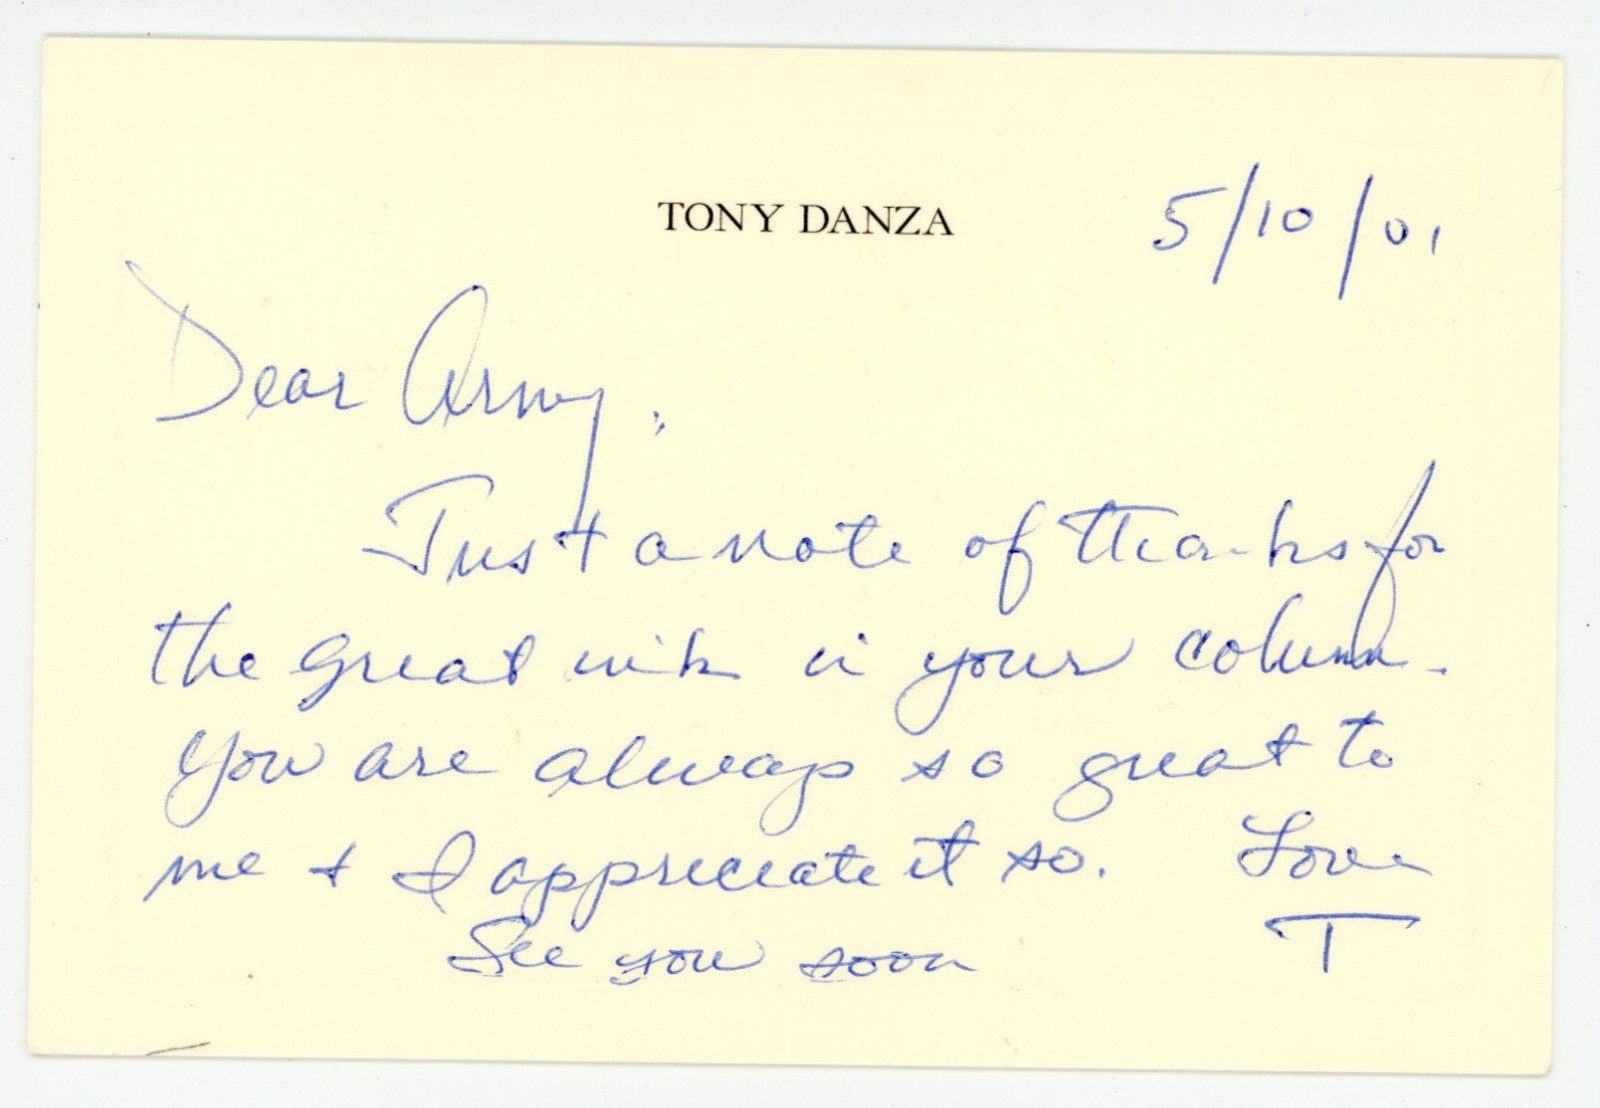 TONY DANZA
5/10/01
Dear Army:
Just a note of thanks for
the great ink in your column.
You are always so great to
me + I appreciate it so. Love
See you soon T